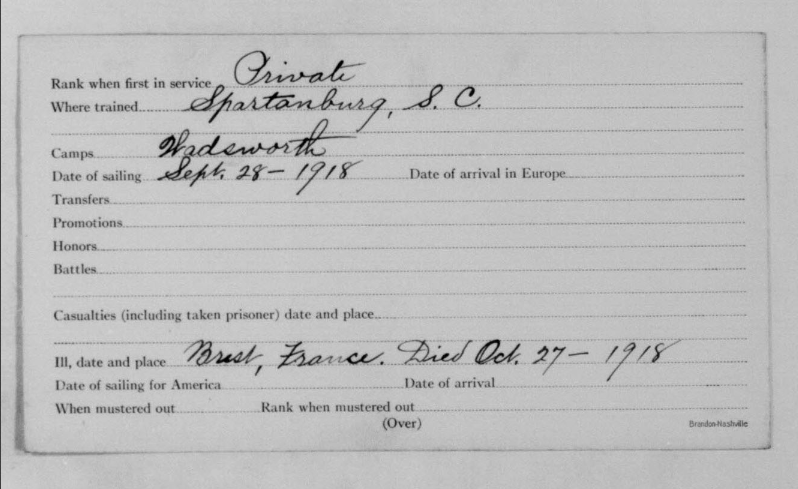 Rank when first in service Private
Where trained Spartanburg, S. C.
Camps Wadsworth
Date of sailing Sept. 28 - 1918 Date of arrival in Europe
Transfers
Promotions
Honors
Battles
Casualties (including taken prisoner) date and place
Ill, date and place Brest, France. Died Oct. 27 - 1918
Date of sailing for America Date of arrival
When mustered out Rank when mustered out
(Over)
Brandon-Nashville